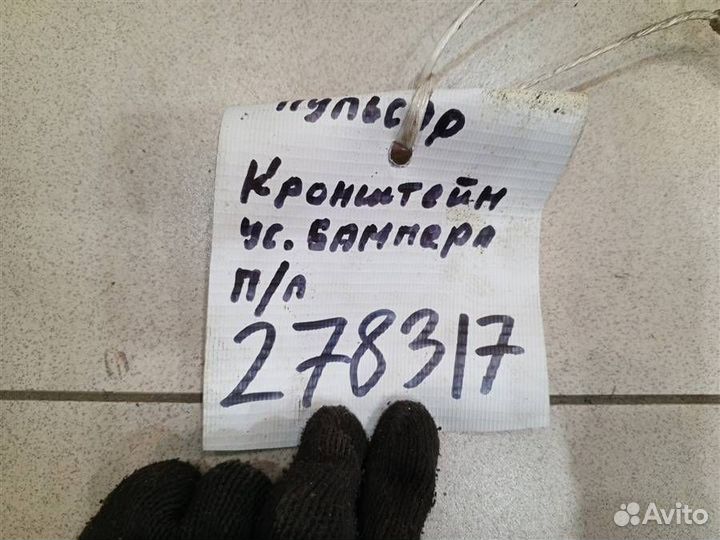 Пульсар
Кронштейн
ус. бампера
п/л
278317
Avito